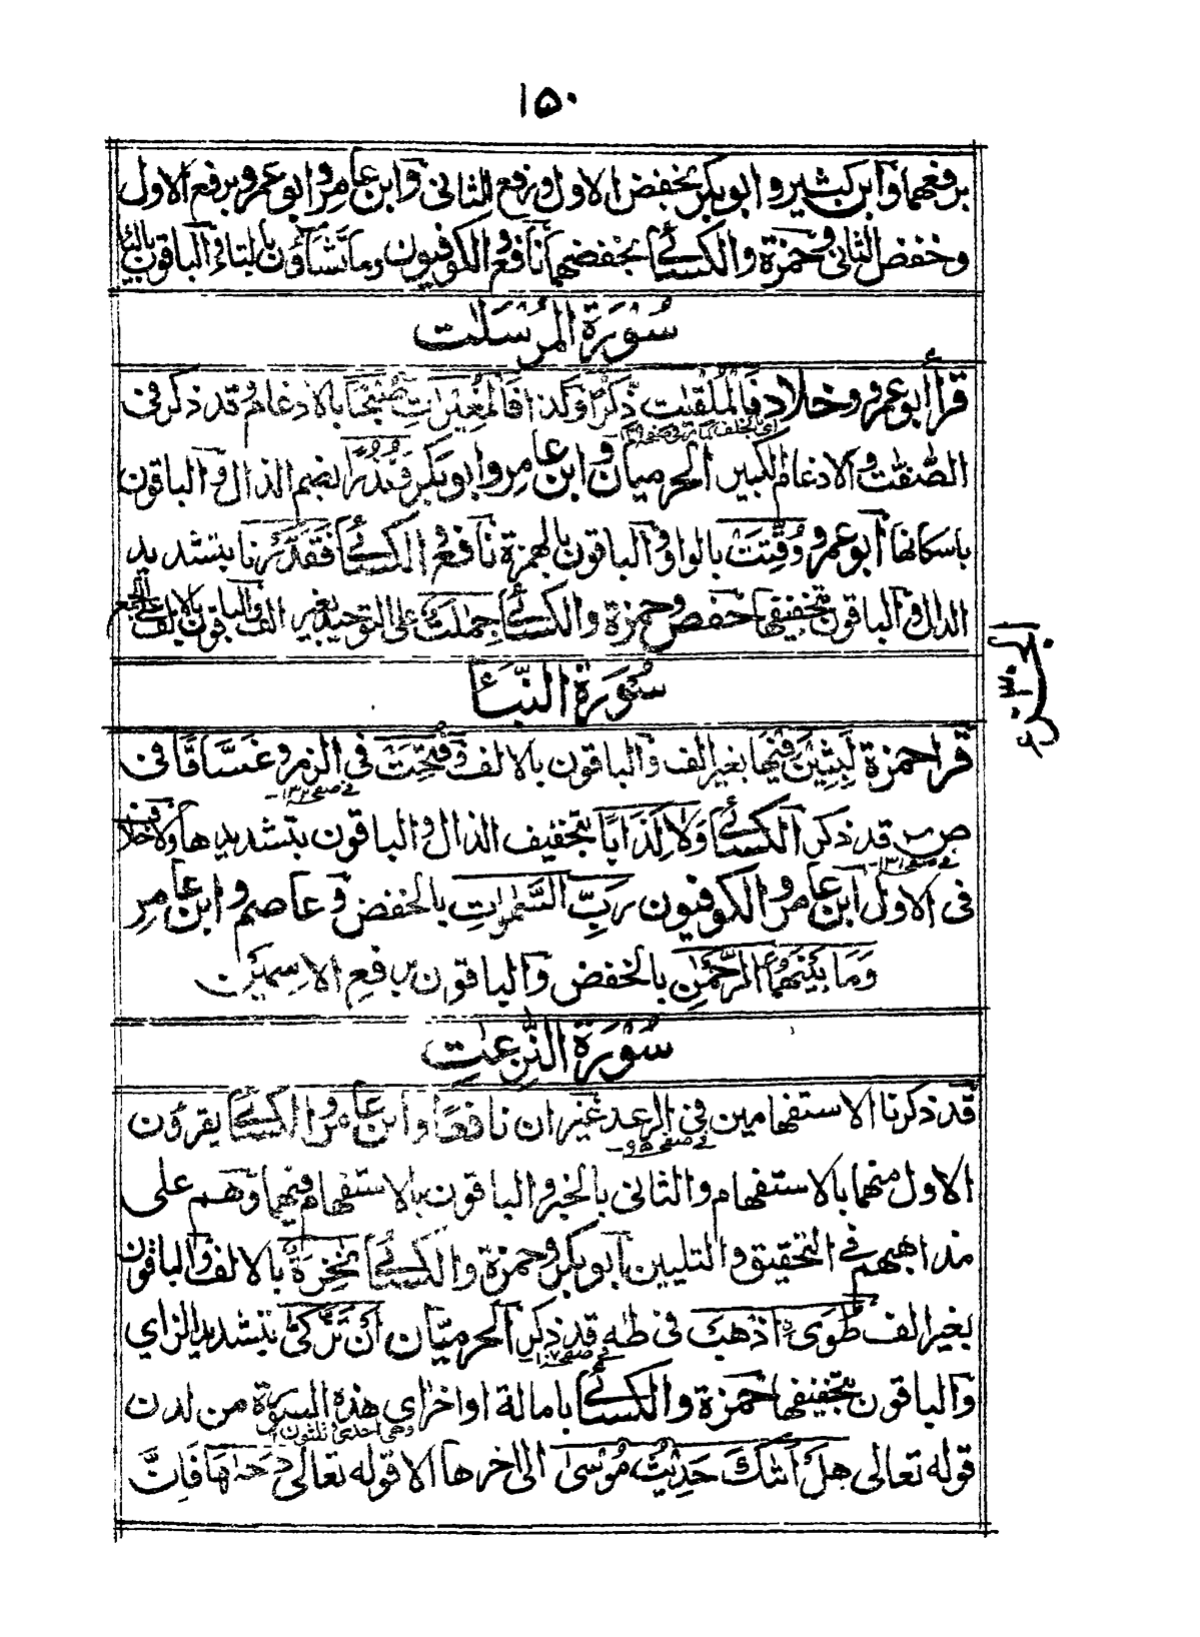 ١٥٠
برفعهما وابن كثير وابو بكر بخفض الاول ورفع الثانى وابن عامر وابو عمرو برفع الاول
وخفض الثانى وحمزة والكسائى بخفضهما نافع والكوفيون وما تشاؤن بالتاء والباقون بالياء
سُوْرَة المُرْسَلٰت
قرأ ابو عمرو وخلاد فَالْمُلْقِيٰت ذِكْرًا وكذا فَالْمُغِيْرٰتِ صُبْحًا بالادغام وقد ذكر فى
الصّٰفّٰت والادغام الكبير الحرميان وابن عامر وابو بكر نُذُرًا بضم الذال والباقون
باسكانها ابو عمرو وُقِّتَتْ بالواو والباقون بالهمزة نافع والكسائى فَقَدَّرْنا بتشديد
الدال والباقون بتخفيفها حفص وحمزة والكسائى جِمٰلَتٌ على التوحيد بغير الف والباقون بالالف على الجمع
الجزء ٣٠
سُوْرَة النَّبَأ
قرأ حمزة لَبِثِيْنَ فِيْهَا بغير الف والباقون بالالف وَفُتِحَتْ فى الزمر وَغَسَّاقًا فى
ص قد ذكر الكسائى وَلَا كِذَابًا بتخفيف الذال والباقون بتشديدها ولا خلاف
فى الاول ابن عامر والكوفيون رَبِّ السَّمٰوٰتِ بالخفض وعاصم وابن عامر
وَمَا بَيْنَهُمَا الرَّحْمٰنِ بالخفض والباقون برفع الاسمين
سُوْرَة النّٰزِعٰتِ
قد ذكرنا الاستفهامين فى الرعد غير ان نافعًا وابن عامر والكسائى يقرؤن
فى صفحه ٩٥
الاول منهما بالاستفهام والثانى بالخبر والباقون بالاستفهام فيهما وهم على
مذاهبهم فى التحقيق والتليين ابو بكر وحمزة والكسائى نٰخِرَةً بالالف والباقون
بغير الف طُوًى اذْهَبْ فى طٰه قد ذكر الحرميّان اَنْ تَزَّكّٰى بتشديد الزاى
والباقون بتخفيفها حمزة والكسائى بامالة اواخر اى هذه السورة من لدن
قوله تعالى هَلْ اَتٰىكَ حَدِيْثُ مُوْسٰى الى اخرها الا قوله تعالى دَحٰىهَا فَاِنَّ